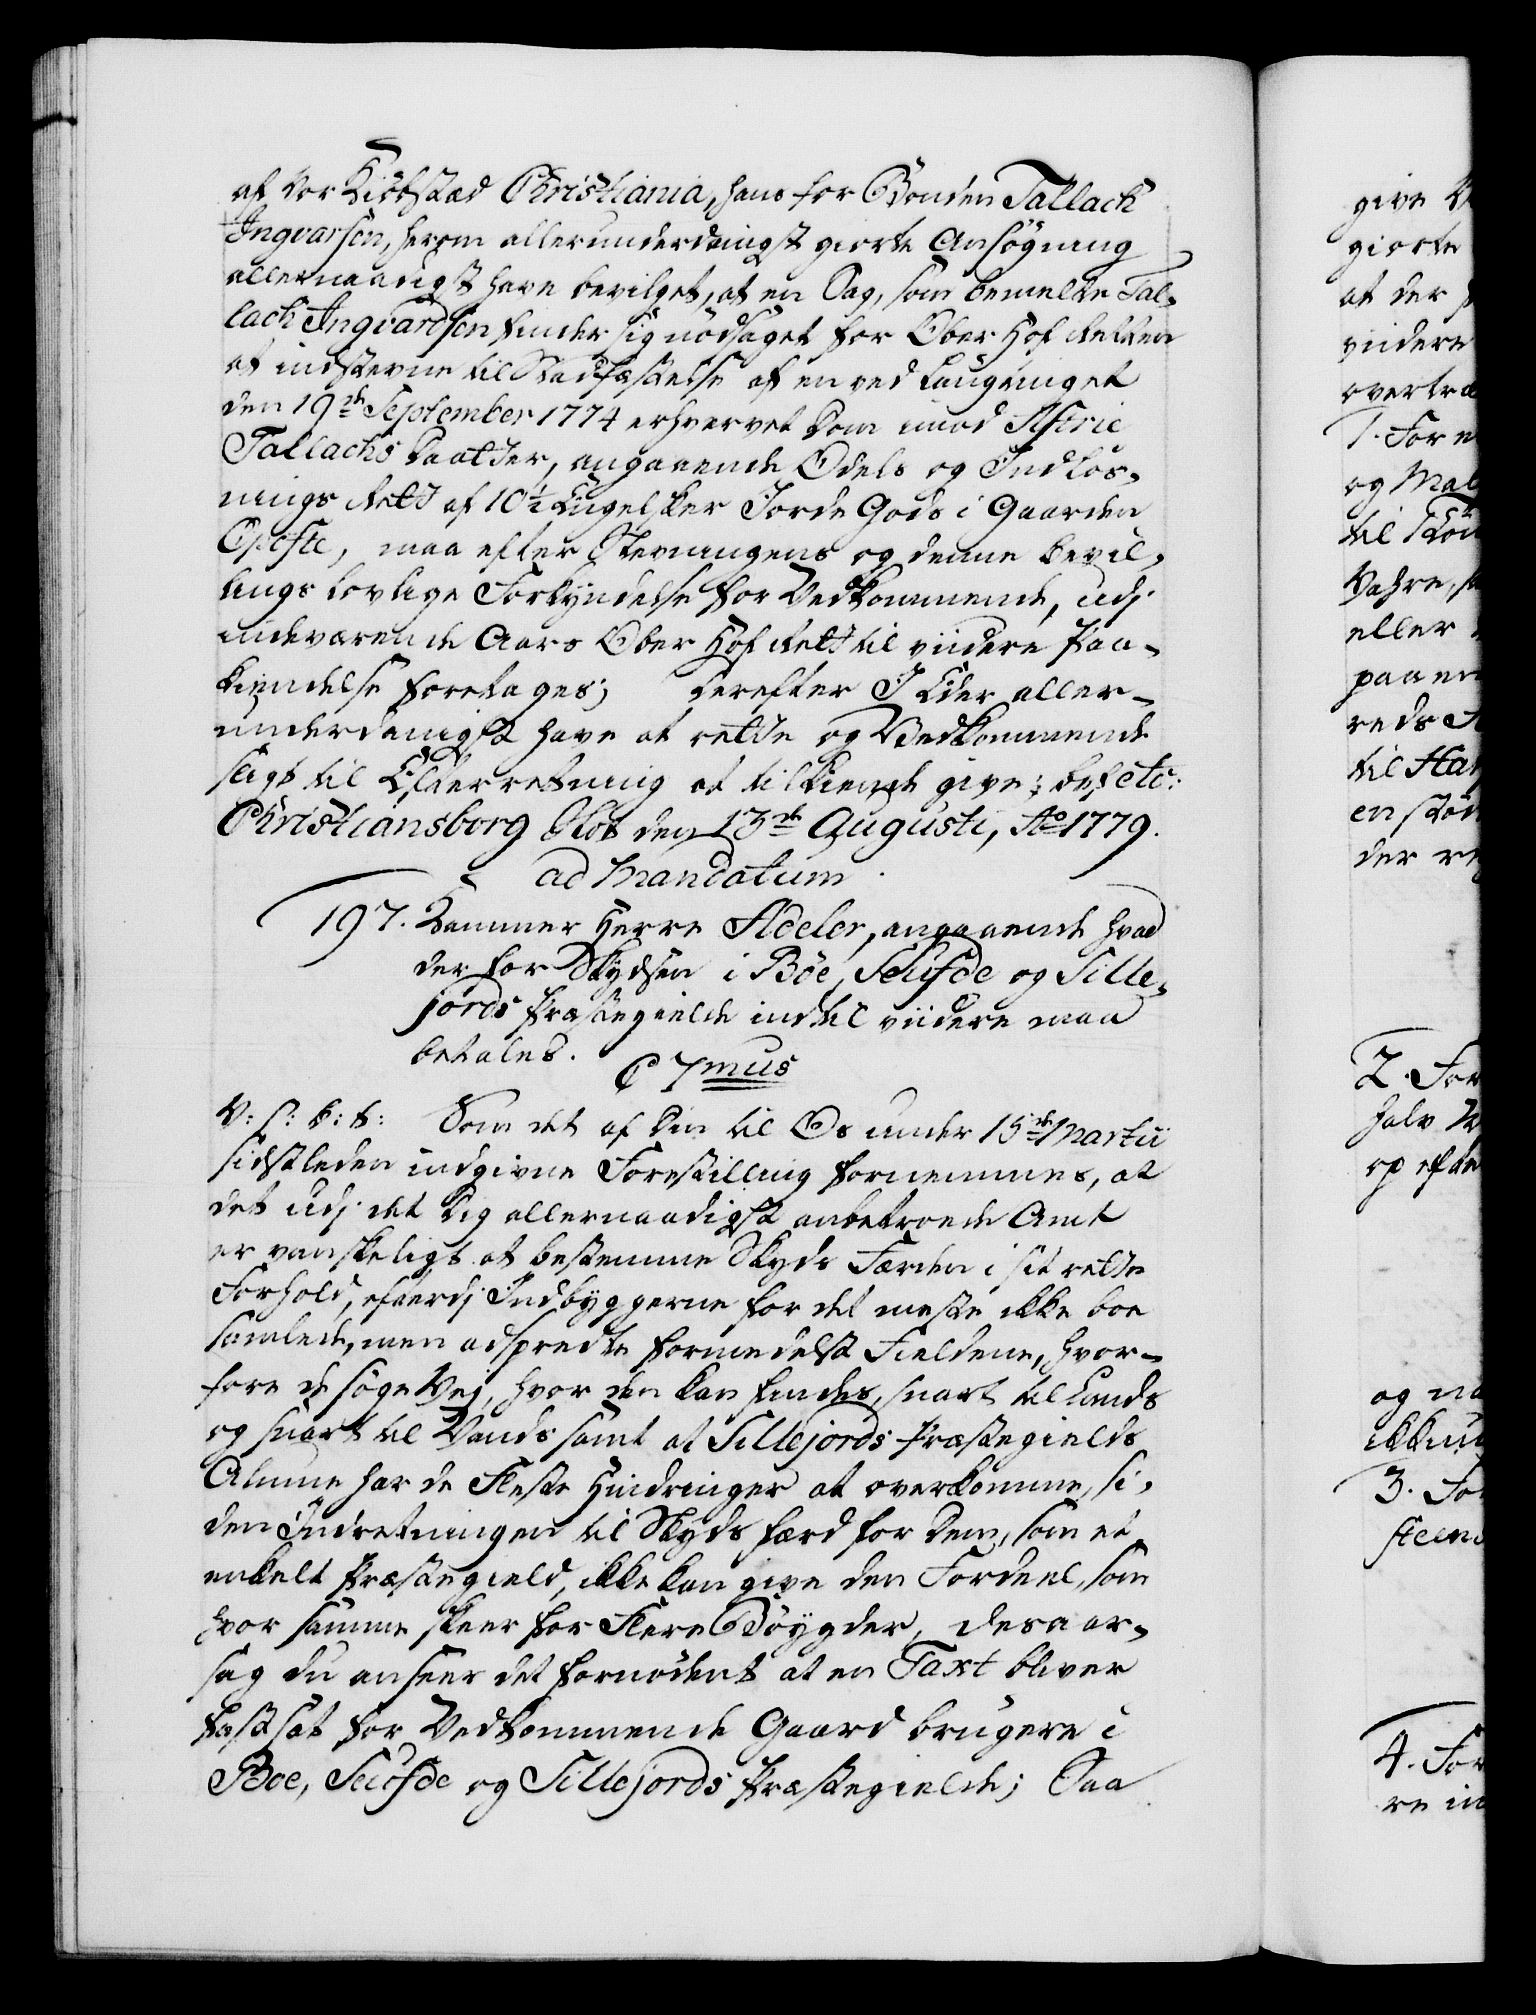 af Vor Kiöbstad Christiania, hans for Bonden Tallach
Ingvarsen, herom allerunderdanigst giorte Ansøgning
allernaadigst have bevilget, at en Sag, som bemelte Tal-
lach Ingvardsen finder sig nødsaget for Ober Hof Retten
at indstevne til Stadfæstelse af en ved Laugtinget
den 19de September 1774 erhvervet Dom imod Astrie
Tallachs Daatter, angaaende Odels og Indløs-
nings Rett af 10½ Engelsker Jorde Gods i Gaarden
Opefte, maa efter Stevningens og denne bevil-
lings lovlige Forkyndelse for Vedkommende, udj
indeværende Aars Ober Hof Rett til viidere Paa-
kiendelse foretages; Derefter I Eder aller-
underdanigst have at rette og Vedkommende
sligt til Efterretning at tilkiende give; bef etc:
Christiansborg Slot den 13de Augusti, Ao 1779.
ad Mandatum.
197. Kammer Herre Adeler, angaaende hvad
der for Skydsen i Böe, Seufde og Sille-
jords Præstegielde indtil viidere maa
betales.
C 7mus
V: S: G: T: Som det af Din til Os under 15de Martii
sidstleden indgivne Forestilling fornemmes, at
det udj det Dig allernaadigst anbetroede Amt
er vanskeligt at bestemme Skyds Færden i sit rette
Forhold, efterdj Indbyggerne for det meste ikke boe
samlede, men adspredte formedelst Fieldene, hvor-
fore de søge Vej, hvor den kan findes, snart til Lands
og snart til Vands samt at Sillejords Præstegields
Almue har de Fleste Hindringer at overkomme, si-
den Indretningen til Skyds færd for Dem, som et
enkelt Præstegield, ikke kan give den Fordeel, som
hvor samme skeer for Flere Böygder, desaar-
sag du anseer det fornødent at en Taxt bliver
fastsat for Vedkommende Gaard brugere i
Boe, Seufde og Sillejords Præstegielde; Saa
give
giorte
at der
viidere
overtræ
1. For
og Mal
til
Vahre,
eller
paa
reds
til Ha
en
der
2. For
halv
op efter
og
ikkun
3. For
4. For
re